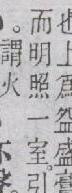 也上爲盌盛
而明照一室。引
。謂火